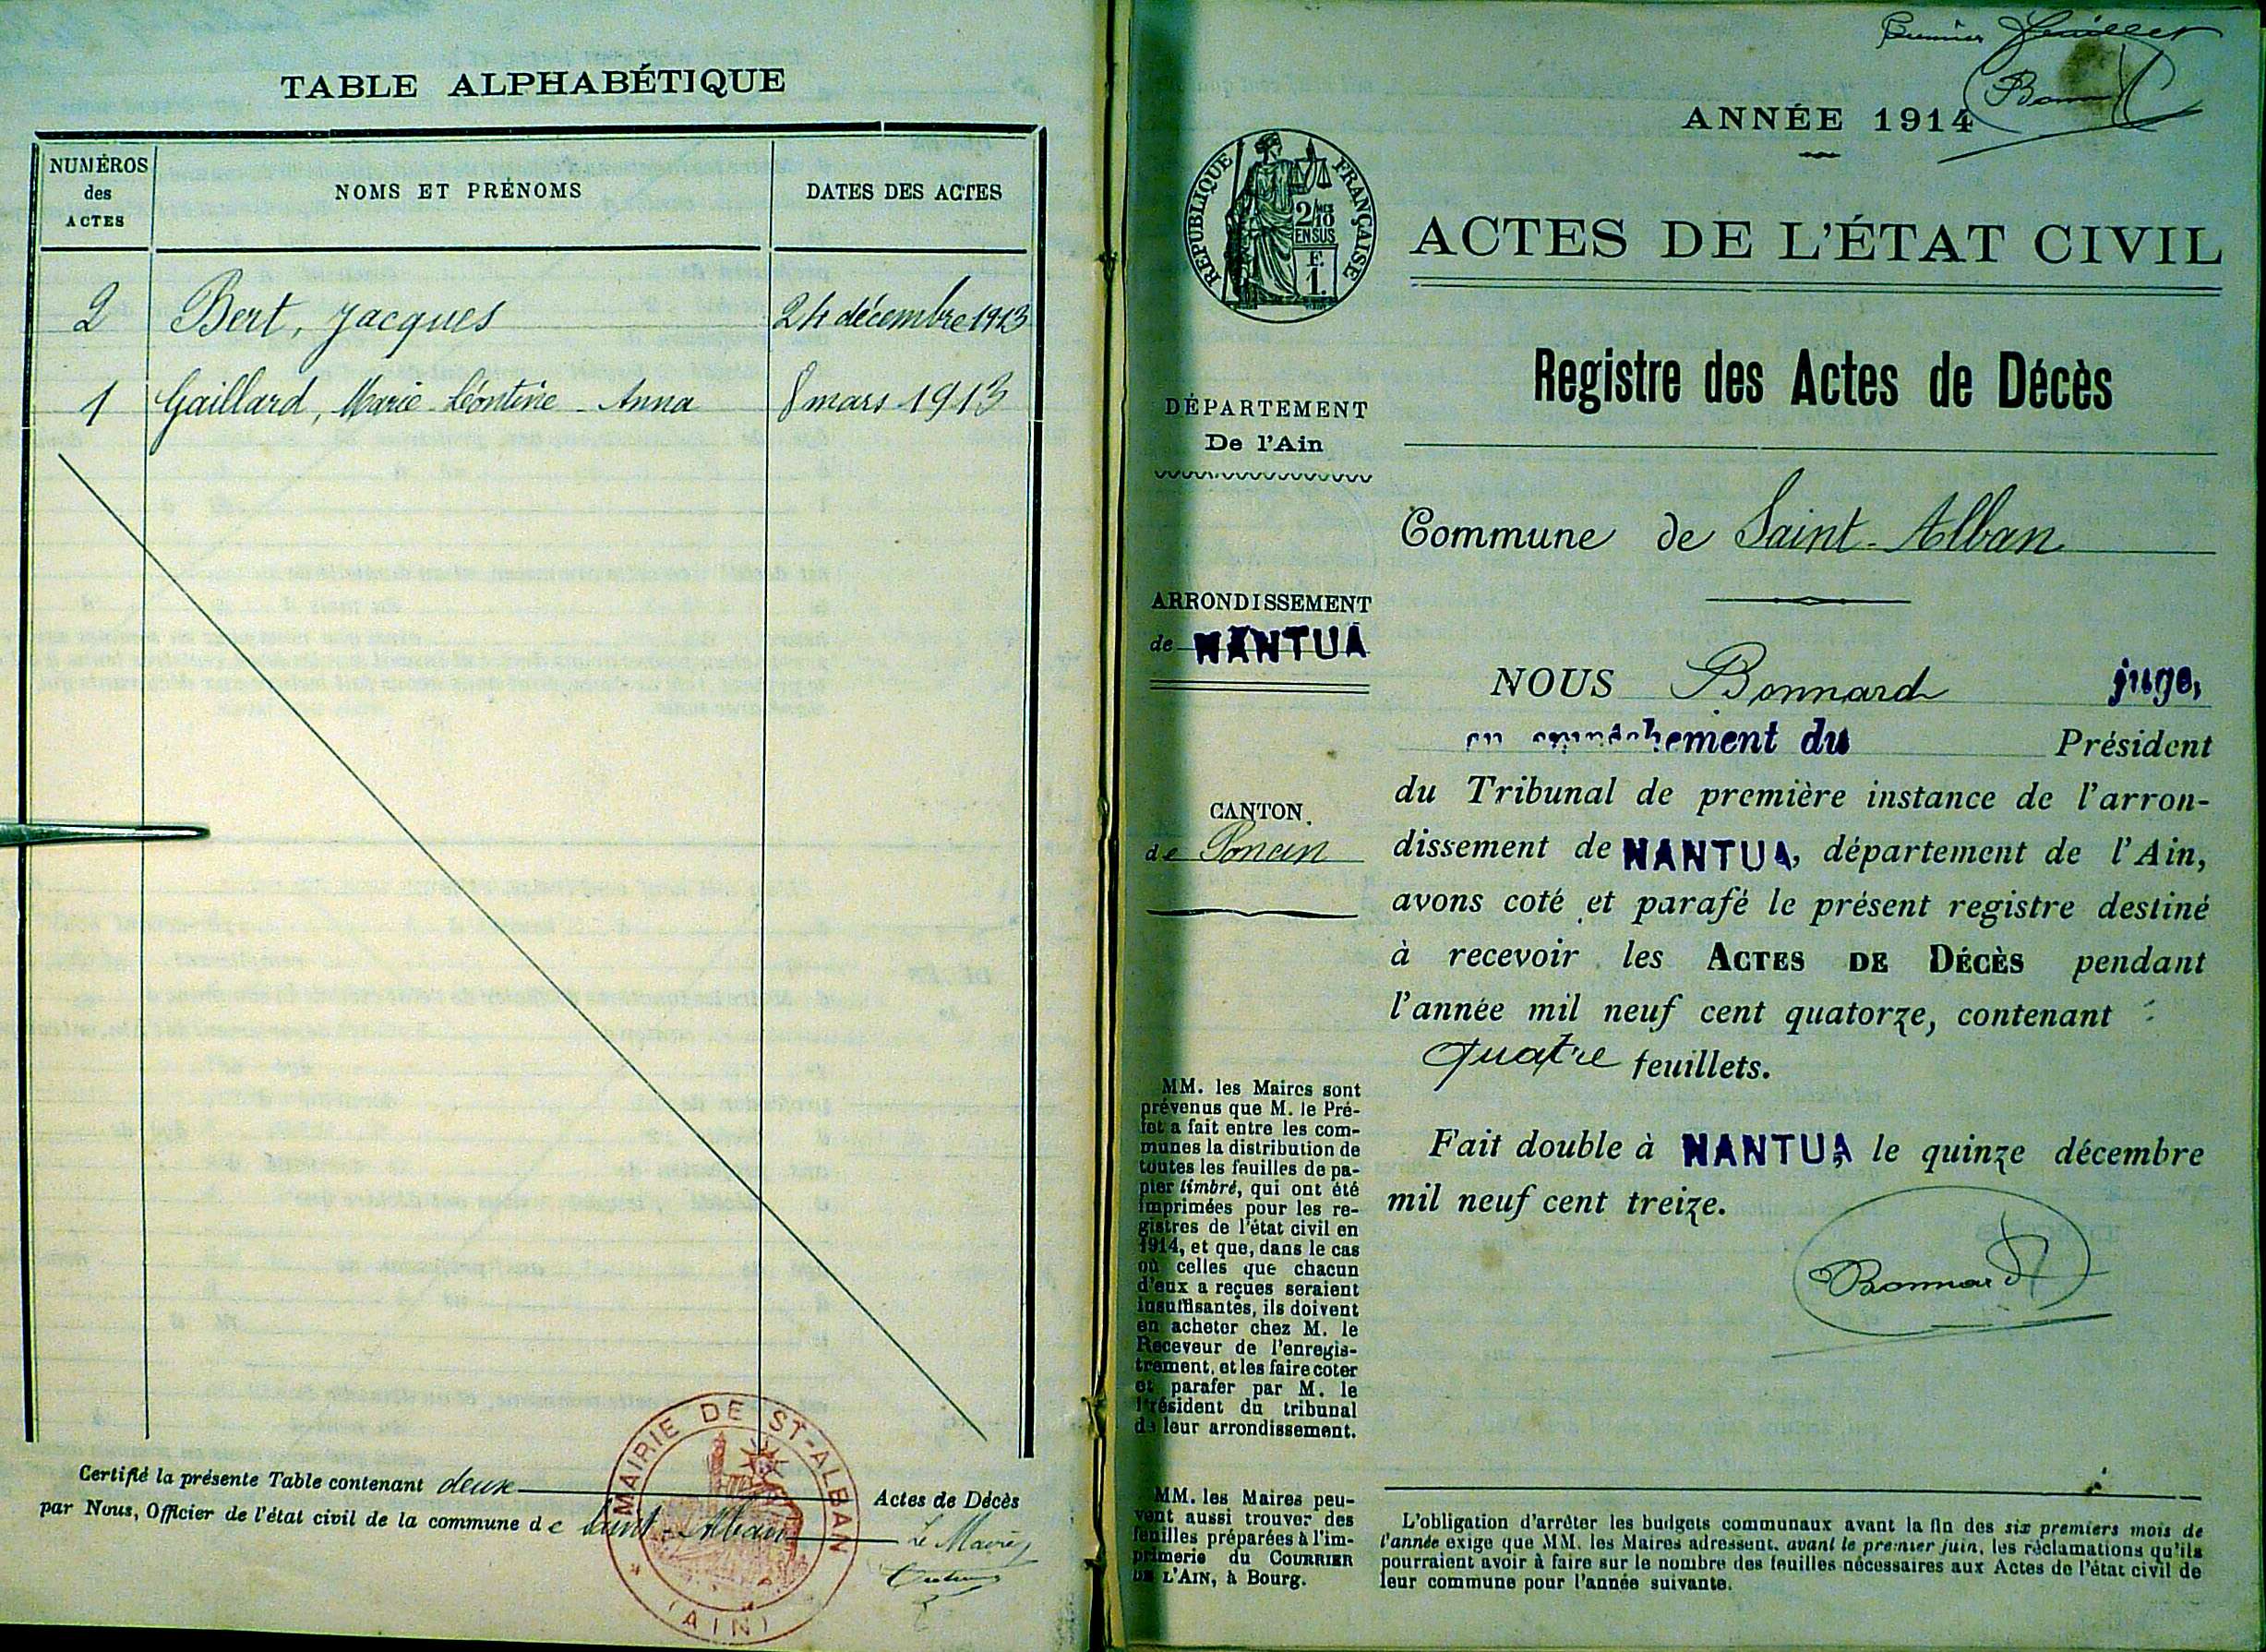 TABLE ALPHABÉTIQUE
NUMÉROS des ACTES
NOMS ET PRÉNOMS
DATES DES ACTES
2 Bert, Jacques 24 décembre 1913
1 Gaillard, Marie-Léontine-Anna 8 mars 1913
Certifié la présente Table contenant deux Actes de Décès
par Nous, Officier de l'état civil de la commune de Saint-Alban
Le Maire,
MAIRIE DE ST-ALBAN
(AIN)
Premier feuillet
Bonnard
ANNÉE 1914
RÉPUBLIQUE FRANÇAISE
2/10
EN SUS
F.
1.
ACTES DE L'ÉTAT CIVIL
Registre des Actes de Décès
DÉPARTEMENT
De l'Ain
Commune de Saint-Alban
ARRONDISSEMENT
de NANTUA
CANTON
de Poncin
NOUS Bonnard juge,
en empêchement du Président
du Tribunal de première instance de l'arron-
dissement de NANTUA, département de l'Ain,
avons coté et parafé le présent registre destiné
à recevoir les ACTES DE DÉCÈS pendant
l'année mil neuf cent quatorze, contenant
quatre feuillets.
Fait double à NANTUA le quinze décembre
mil neuf cent treize.
Bonnard
MM. les Maires sont
prévenus que M. le Pré-
fet a fait entre les com-
munes la distribution de
toutes les feuilles de pa-
pier timbré, qui ont été
imprimées pour les re-
gistres de l'état civil en
1914, et que, dans le cas
où celles que chacun
d'eux a reçues seraient
insuffisantes, ils doivent
en acheter chez M. le
Receveur de l'enregis-
trement, et les faire coter
et parafer par M. le
Président du tribunal
de leur arrondissement.
MM. les Maires peu-
vent aussi trouver des
feuilles préparées à l'im-
primerie du COURRIER
DE L'AIN, à Bourg.
L'obligation d'arrêter les budgets communaux avant la fin des six premiers mois de
l'année exige que MM. les Maires adressent, avant le premier juin, les réclamations qu'ils
pourraient avoir à faire sur le nombre des feuilles nécessaires aux Actes de l'état civil de
leur commune pour l'année suivante.